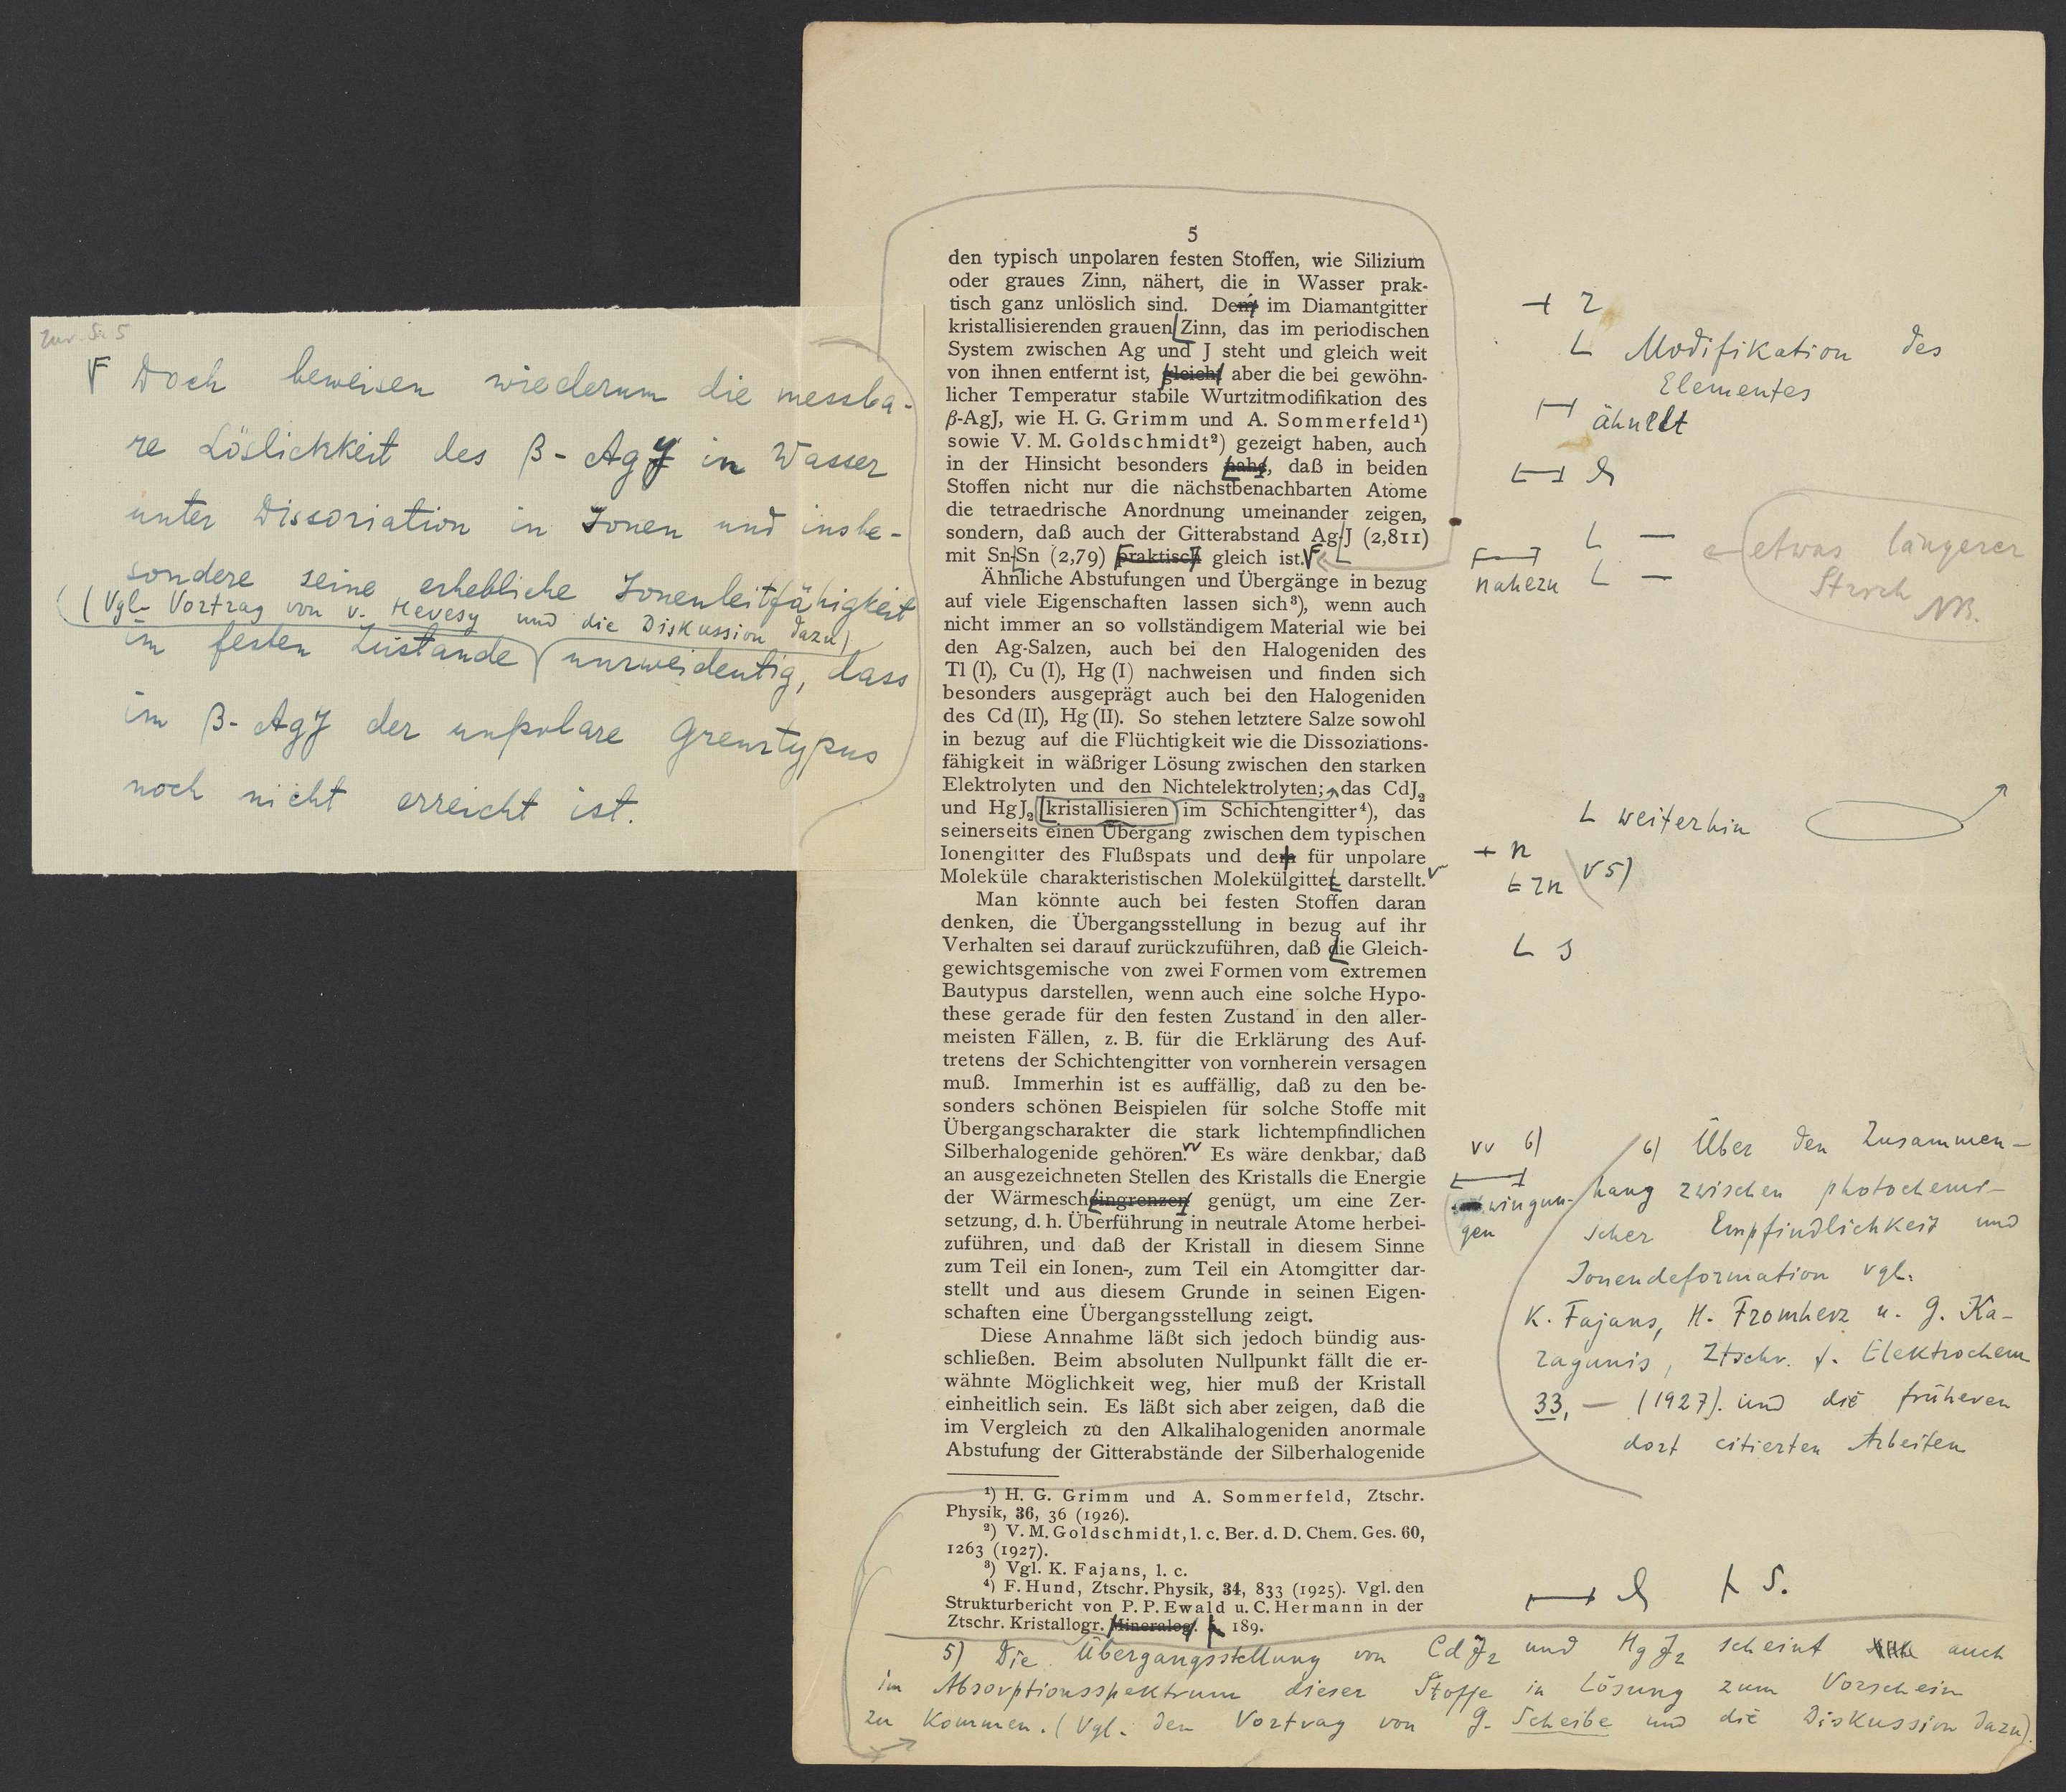 Zur S. 5
Doch beweisen wiederum die messba-
re Löslichkeit des β-AgJ in Wasser
unter Dissoziation in Ionen und insbe-
sondere seine erhebliche Ionenleitfähigkeit
(Vgl. Vortrag von v. Hevesy und die Diskussion dazu)
im festen Zustande unzweideutig, dass
im β-AgJ der unpolare Grenztypus
noch nicht erreicht ist.
5
den typisch unpolaren festen Stoffen, wie Silizium
oder graues Zinn, nähert, die in Wasser prak-
tisch ganz unlöslich sind. Dem im Diamantgitter
kristallisierenden grauen Zinn, das im periodischen
System zwischen Ag und J steht und gleich weit
von ihnen entfernt ist, gleicht aber die bei gewöhn-
licher Temperatur stabile Wurtzitmodifikation des
β-AgJ, wie H. G. Grimm und A. Sommerfeld¹)
sowie V. M. Goldschmidt²) gezeigt haben, auch
in der Hinsicht besonders nahe, daß in beiden
Stoffen nicht nur die nächstbenachbarten Atome
die tetraedrische Anordnung umeinander zeigen,
sondern, daß auch der Gitterabstand Ag-J (2,811)
mit Sn-Sn (2,79) praktisch gleich ist.
Ähnliche Abstufungen und Übergänge in bezug
auf viele Eigenschaften lassen sich³), wenn auch
nicht immer an so vollständigem Material wie bei
den Ag-Salzen, auch bei den Halogeniden des
Tl (I), Cu (I), Hg (I) nachweisen und finden sich
besonders ausgeprägt auch bei den Halogeniden
des Cd (II), Hg (II). So stehen letztere Salze sowohl
in bezug auf die Flüchtigkeit wie die Dissoziations-
fähigkeit in wäßriger Lösung zwischen den starken
Elektrolyten und den Nichtelektrolyten; das CdJ₂
und HgJ₂ kristallisieren im Schichtengitter⁴), das
seinerseits einen Übergang zwischen dem typischen
Ionengitter des Flußspats und dem für unpolare
Moleküle charakteristischen Molekülgitter darstellt.
Man könnte auch bei festen Stoffen daran
denken, die Übergangsstellung in bezug auf ihr
Verhalten sei darauf zurückzuführen, daß die Gleich-
gewichtsgemische von zwei Formen vom extremen
Bautypus darstellen, wenn auch eine solche Hypo-
these gerade für den festen Zustand in den aller-
meisten Fällen, z. B. für die Erklärung des Auf-
tretens der Schichtengitter von vornherein versagen
muß. Immerhin ist es auffällig, daß zu den be-
sonders schönen Beispielen für solche Stoffe mit
Übergangscharakter die stark lichtempfindlichen
Silberhalogenide gehören. Es wäre denkbar, daß
an ausgezeichneten Stellen des Kristalls die Energie
der Wärmescheingrenzen genügt, um eine Zer-
setzung, d. h. Überführung in neutrale Atome herbei-
zuführen, und daß der Kristall in diesem Sinne
zum Teil ein Ionen-, zum Teil ein Atomgitter dar-
stellt und aus diesem Grunde in seinen Eigen-
schaften eine Übergangsstellung zeigt.
Diese Annahme läßt sich jedoch bündig aus-
schließen. Beim absoluten Nullpunkt fällt die er-
wähnte Möglichkeit weg, hier muß der Kristall
einheitlich sein. Es läßt sich aber zeigen, daß die
im Vergleich zu den Alkalihalogeniden anormale
Abstufung der Gitterabstände der Silberhalogenide
¹) H. G. Grimm und A. Sommerfeld, Ztschr.
Physik, 36, 36 (1926).
²) V. M. Goldschmidt, l. c. Ber. d. D. Chem. Ges. 60,
1263 (1927).
³) Vgl. K. Fajans, l. c.
⁴) F. Hund, Ztschr. Physik, 34, 833 (1925). Vgl. den
Strukturbericht von P. P. Ewald u. C. Hermann in der
Ztschr. Kristallogr. Mineralog. 189.
5) Die Übergangsstellung von CdJ₂ und HgJ₂ scheint auch
im Absorptionsspektrum dieser Stoffe in Lösung zum Vorschein
zu kommen. (Vgl. den Vortrag von G. Scheibe und die Diskussion dazu).
r
Modifikation des
Elementes
ähnelt
etwas längerer
Strich
NB.
nahezu
weiterhin
n
rn
5)
s
6)
wingun-
gen
6) Über den Zusammen-
hang zwischen photochemi-
scher Empfindlichkeit und
Ionendeformation vgl.
K. Fajans, H. Fromherz u. G. Ka-
ragunis, Ztschr. f. Elektrochem
33, — (1927). und die früheren
dort citierten Arbeiten
S.